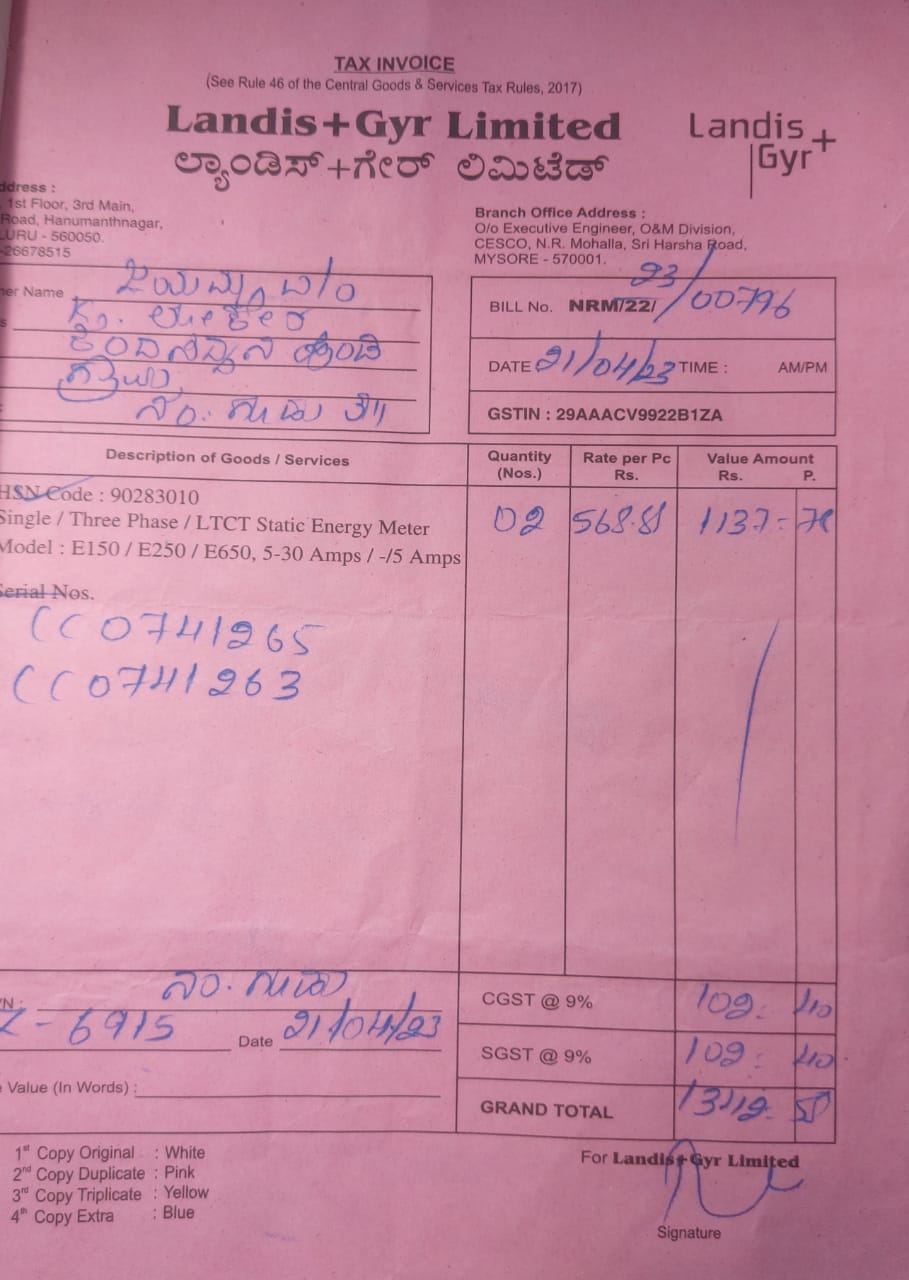 TAX INVOICE
(See Rule 46 of the Central Goods & Services Tax Rules, 2017)
Landis+Gyr Limited
ಲ್ಯಾಂಡಿಸ್+ಗೇರ್ ಲಿಮಿಟೆಡ್
Landis
Gyr+
ddress :
1st Floor, 3rd Main,
Road, Hanumanthnagar,
URU - 560050.
-26678515
Branch Office Address :
O/o Executive Engineer, O&M Division,
CESCO, N.R. Mohalla, Sri Harsha Road,
MYSORE - 570001.
er Name
BILL No. NRM/22/ 23/ /00796
DATE 21/04/23 TIME : AM/PM
GSTIN : 29AAACV9922B1ZA
Description of Goods / Services
Quantity (Nos.)
Rate per Pc Rs.
Value Amount Rs. P.
HSN Code : 90283010
Single / Three Phase / LTCT Static Energy Meter
02 568.81 1137=
Model : E150 / E250 / E650, 5-30 Amps / -/5 Amps
Serial Nos.
CC0741265
CC0741263
- 6915 Date 21/04/23
CGST @ 9% 102= 40
SGST @ 9% 102= 40
Value (In Words) :
GRAND TOTAL 1342=
1st Copy Original : White
2nd Copy Duplicate : Pink
3rd Copy Triplicate : Yellow
4th Copy Extra : Blue
For Landis+Gyr Limited
Signature